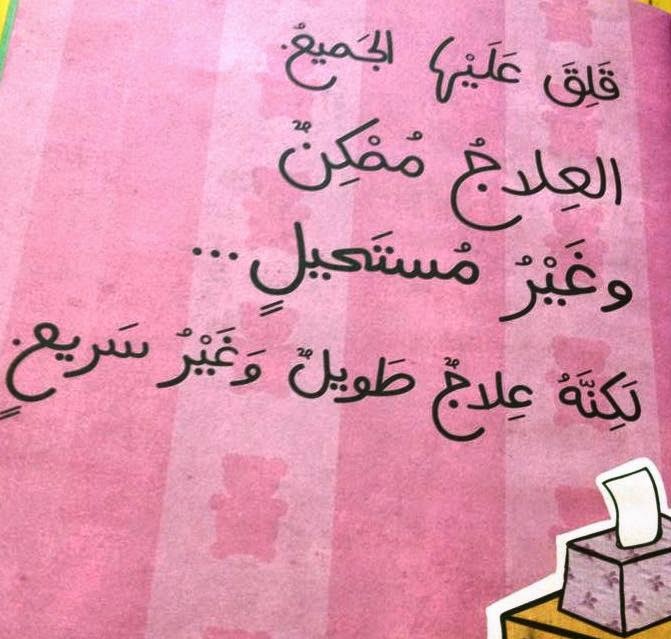 قَلِقَ عَلَيْها الجَميعُ.
العِلاجُ مُمْكِنٌ
وغَيْرُ مُستَحيلٍ...
لَكِنَّهُ عِلاجٌ طَويلٌ وَغَيْرُ سَريعٍ